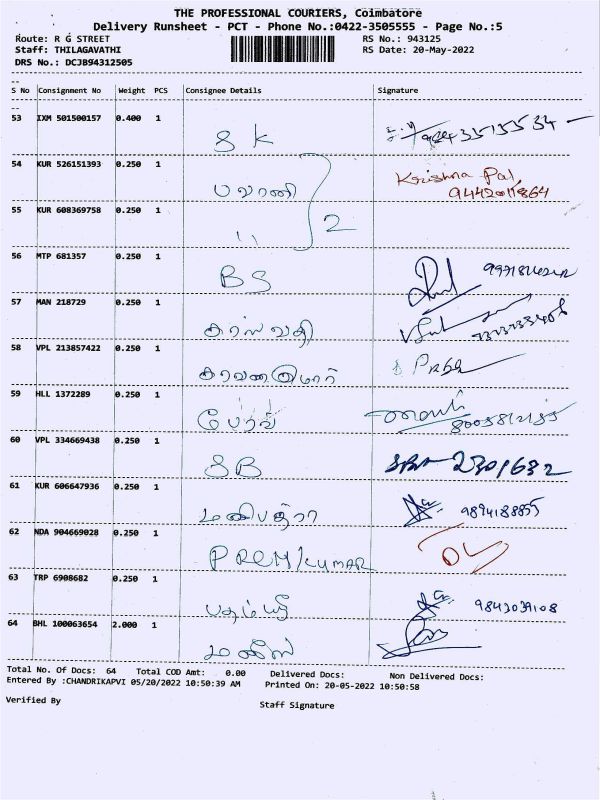 THE PROFESSIONAL COURIERS, Coimbatore
Delivery Runsheet - PCT - Phone No.:0422-3505555 - Page No.:5
Route: R G STREET RS No.: 943125
Staff: THILAGAVATHI RS Date: 20-May-2022
DRS No.: DCJB94312505
S No Consignment No Weight PCS Consignee Details Signature
53 IXM 501500157 0.400 1
S K
54 KUR 526151393 0.250 1
பவானி Krishna Pal,
55 KUR 608369758 0.250 1
" 2
56 MTP 681357 0.250 1
BS
57 MAN 218729 0.250 1
58 VPL 213857422 0.250 1
59 HLL 1372289 0.250 1
60 VPL 334669438 0.250 1
SB 2301632
61 KUR 606647936 0.250 1
9894188855
62 NDA 904669028 0.250 1
PREM/KUMAR
63 TRP 6908682 0.250 1
9843039108
64 BHL 100063654 2.000 1
Total No. Of Docs: 64 Total COD Amt: 0.00 Delivered Docs: Non Delivered Docs:
Entered By :CHANDRIKAPVI 05/20/2022 10:50:39 AM Printed On: 20-05-2022 10:50:58
Verified By Staff Signature